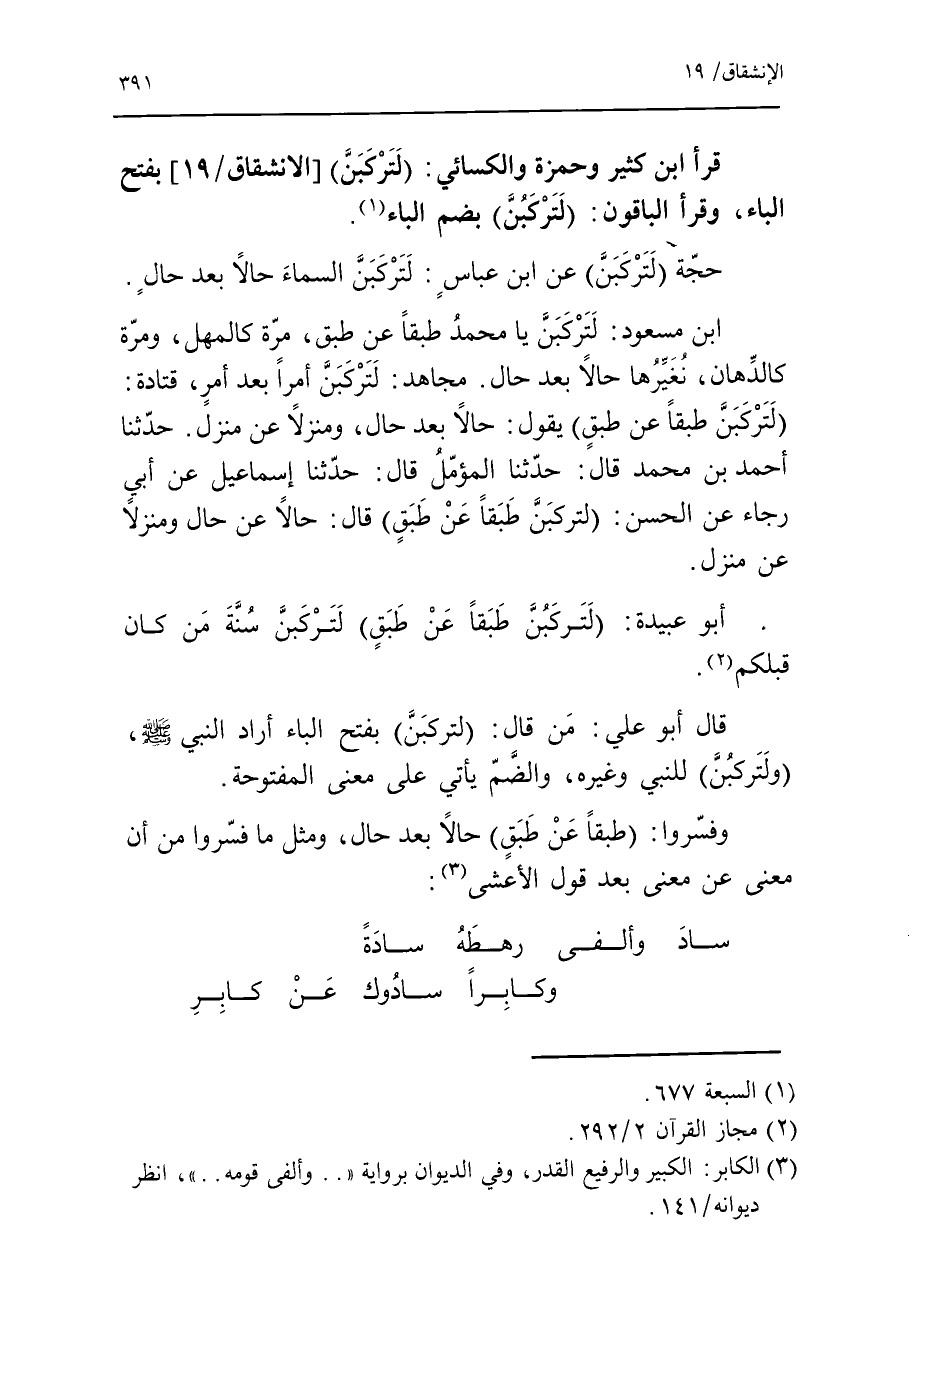 الإنشقاق/ ١٩
٣٩١
قرأ ابن كثير وحمزة والكسائي: (لَتَرْكَبَنَّ) [الانشقاق/١٩] بفتح
الباء، وقرأ الباقون: (لَتَرْكَبُنَّ) بضم الباء(١).
حجّة (لَتَرْكَبَنَّ) عن ابن عباسٍ: لَتَرْكَبَنَّ السماءَ حالاً بعد حالٍ.
ابن مسعود: لَتَرْكَبَنَّ يا محمدُ طبقاً عن طبق، مرّة كالمهل، ومرّة
كالدِّهان، نُغَيِّرُها حالاً بعد حال. مجاهد: لَتَرْكَبَنَّ أمراً بعد أمرٍ، قتادة:
(لَتَرْكَبَنَّ طبقاً عن طبقٍ) يقول: حالاً بعد حال، ومنزلاً عن منزل. حدّثنا
أحمد بن محمد قال: حدّثنا المؤمّلُ قال: حدّثنا إسماعيل عن أبي
رجاء عن الحسن: (لتركبَنَّ طَبَقاً عَنْ طَبَقٍ) قال: حالاً عن حال ومنزلاً
عن منزل.
أبو عبيدة: (لَتَركَبُنَّ طَبَقاً عَنْ طَبَقٍ) لَتَرْكَبنَّ سُنَّةَ مَن كان
قبلكم(٢).
قال أبو علي: مَن قال: (لتركبَنَّ) بفتح الباء أراد النبي ﷺ،
(ولَتَركبُنَّ) للنبي وغيره، والضَّمّ يأتي على معنى المفتوحة.
وفسّروا: (طبقاً عَنْ طَبَقٍ) حالاً بعد حال، ومثل ما فسّروا من أن
معنى عن معنى بعد قول الأعشى(٣):
سادَ وألفى رهطَهُ سادَةً
وكابِراً سادُوك عَنْ كابِرِ
(١) السبعة ٦٧٧.
(٢) مجاز القرآن ٢٩٢/٢.
(٣) الكابر: الكبير والرفيع القدر، وفي الديوان برواية «.. وألفى قومه..»، انظر
ديوانه/١٤١.